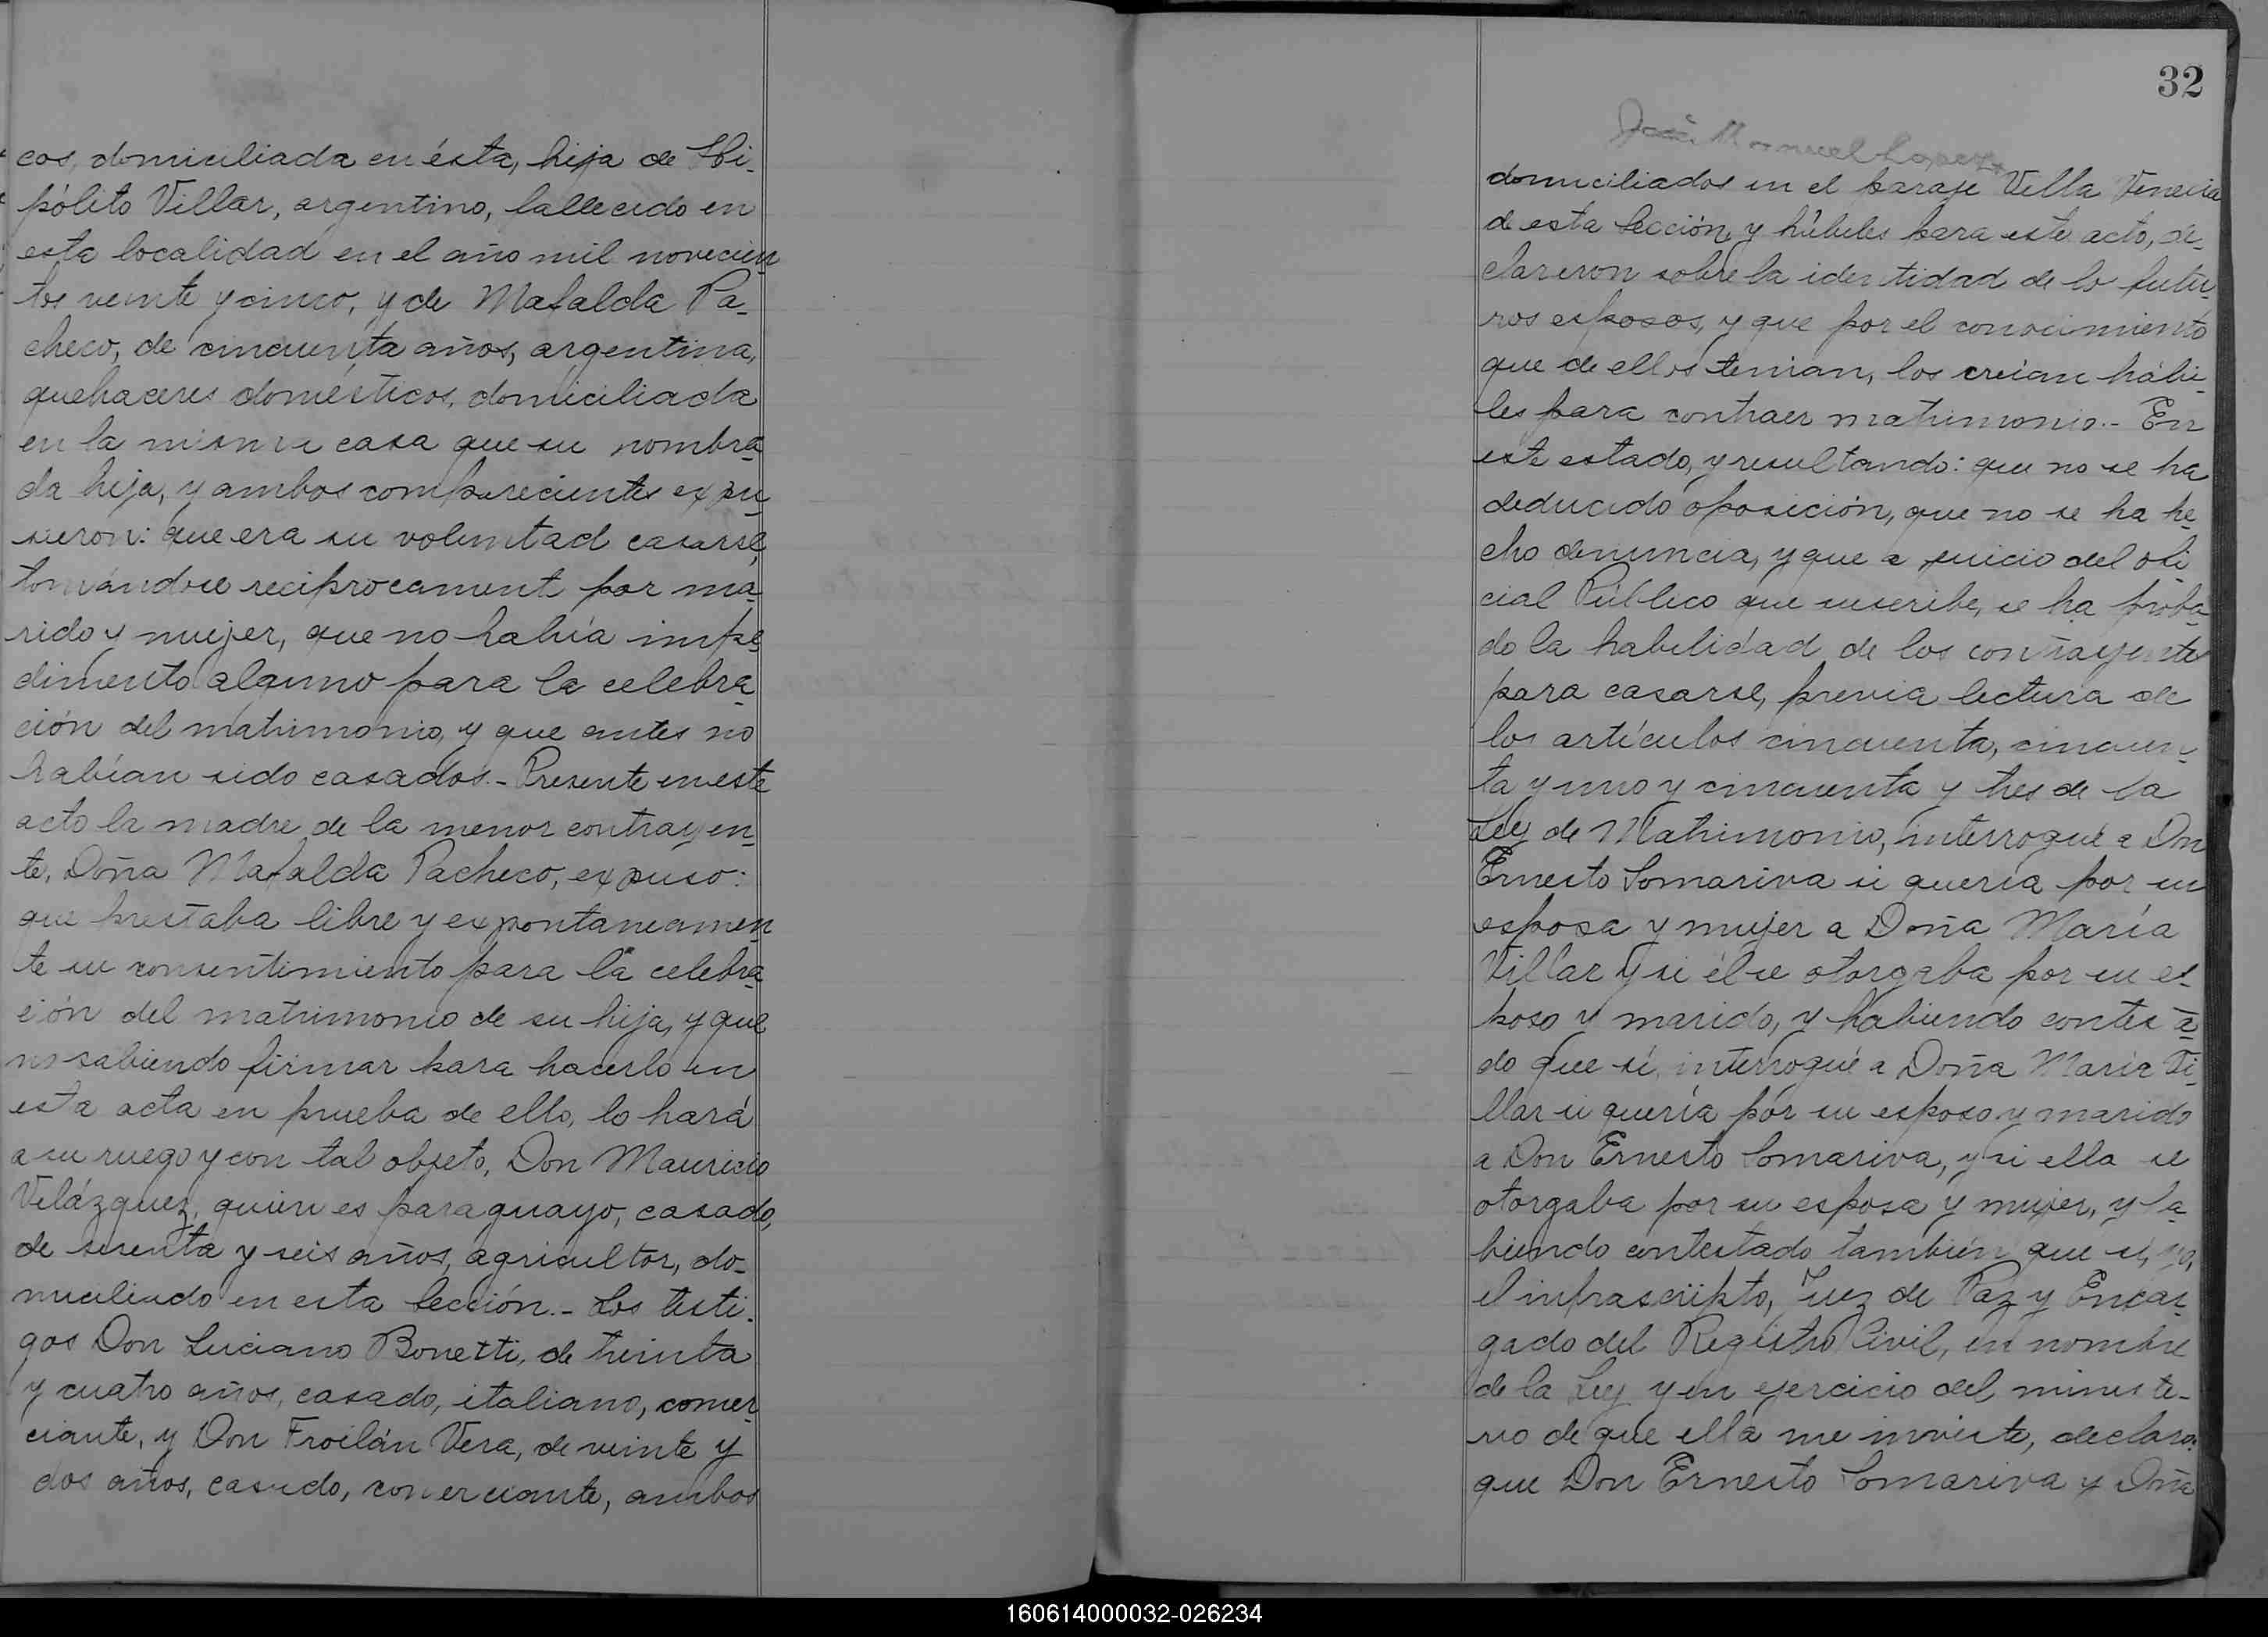 cos, domiciliada en ésta, hija de Hi-
pólito Villar, argentino, fallecido en
esta localidad en el año mil novecien-
tos veinte y cinco, y de Mafalda Pa-
checo, de cincuenta años, argentina,
quehaceres domésticos, domiciliada
en la misma casa que su nombra-
da hija, y ambos comparecientes expu-
sieron: que era su voluntad casarse,
tomándose reciprocament por ma-
rido y mujer, que no había impe-
dimento alguno para la celebra-
ción del matrimonio, y que antes no
habían sido casados.- Presente en este
acto la madre de la menor contrayen-
te, Doña Mafalda Pacheco, expuso:
que prestaba libre y expontaneamen-
te su consentimiento para la celebra-
ción del matrimonio de su hija, y que
no sabiendo firmar para hacerlo en
esta acta en prueba de ello, lo hará
a su ruego y con tal objeto, Don Mauricio
Velázquez, quien es paraguayo, casado,
de y seis años, agricultor, do-
miciliado en esta Sección.- Los testi-
gos Don Luciano Bonetti, de treinta
y cuatro años, casado, italiano, comer-
ciante, y Don Froilán Vera, de veinte y
dos años, casado, comerciante, ambos
32
José Manuel Lopez
domiciliados en el paraje Villa Venecia
de esta Sección, y hábiles para este acto, de-
clararon sobre la identidad de lo futu-
ros esposos, y que por el conocimiento
que de ellos tenian, los creían hábi-
les para contraer matrimonio.- En
este estado, y resultando: que no se ha
deducido oposición, que no se ha he-
cho denuncia, y que a juicio del ofi-
cial Público que suscribe, se ha proba-
do la habilidad de los contrayentes
para casarse, previa lectura de
los artículos cincuenta, cincuen-
ta y uno y cincuenta y tres de la
Ley de Matrimonio, interrogué a Don
Ernesto Somariva si quería por su
esposa y mujer a Doña María
Villar y si él se otorgaba por su es-
poso y marido, y habiendo contesta-
do que sí, interrogué a Doña María Vi-
llar si quería por su esposo y marido
a Don Ernesto Somariva, y si ella se
otorgaba por su esposa y mujer, y ha-
biendo contestado también que sí, yo,
el infrascripto, Juez de Paz y Encar-
gado del Registro Civil, en nombre
de la Ley y en ejercicio del ministe-
rio de que ella me inviste, declaro:
que Don Ernesto Somariva y Doña
160614000032-026234